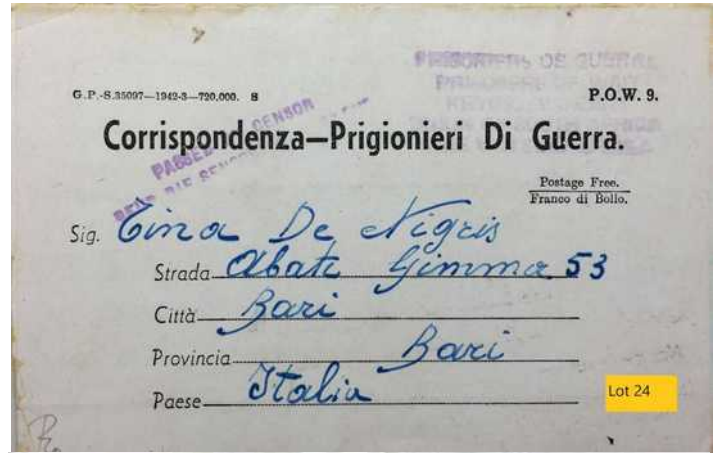 PRISONIERS DE GUERRA
G.P.-S.35097—1942-3—720,000. S
P.O.W. 9.
PASSED CENSOR
Corrispondenza—Prigionieri Di Guerra.
Postage Free.
Franco di Bollo.
Sig. Tina De Nigris
Strada Abate Gimma 53
Città Bari
Provincia Bari
Paese Italia
Lot 24